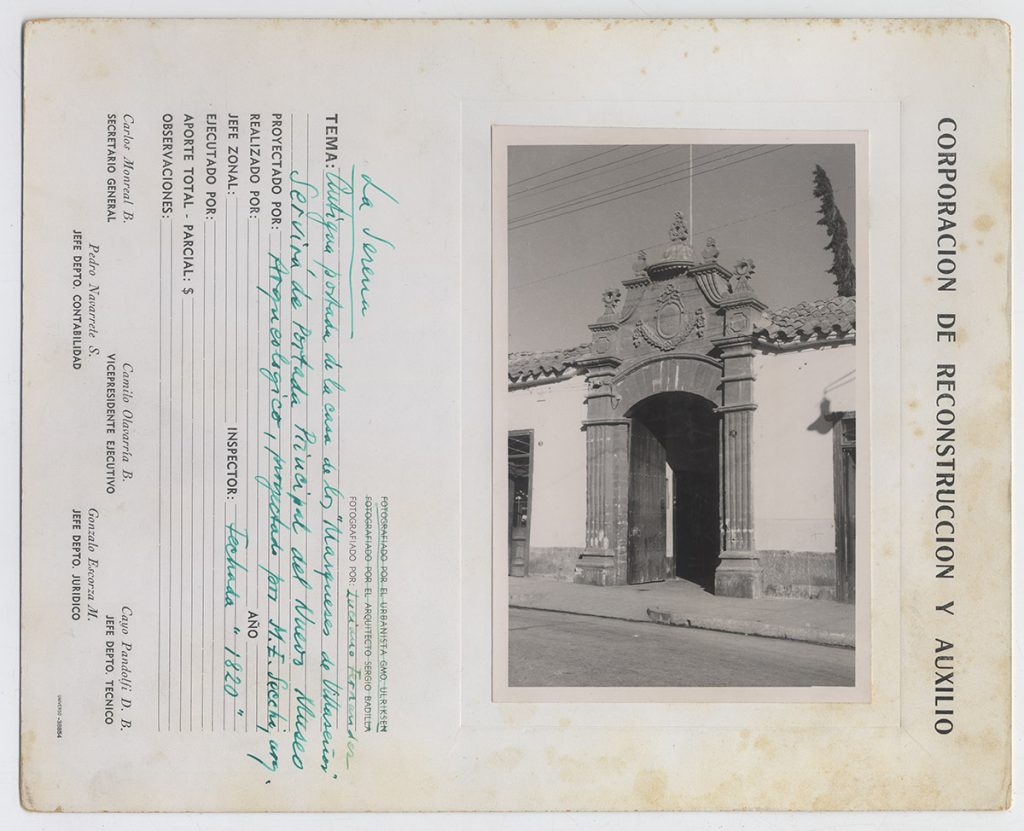 CORPORACION DE RECONSTRUCCION Y AUXILIO
FOTOGRAFIADO POR EL URBANISTA GMO. ULRIKSEN
FOTOGRAFIADO POR EL ARQUITECTO SERGIO BADILLA
FOTOGRAFIADO POR: Luciano Fernandez
La Serena
TEMA: Antigua portada de la casa de los "Marqueses de Villaseñor"
Servirá de Portada Principal del Nuevo Museo
PROYECTADO POR: Arqueologico, proyectado por M.E. Secchi, arq.
REALIZADO POR: AÑO
JEFE ZONAL: INSPECTOR: Fechada "1820"
EJECUTADO POR:
APORTE TOTAL - PARCIAL: $
OBSERVACIONES:
Carlos Monreal B. Camilo Olavarría B. Cayo Pandolfi D. B.
SECRETARIO GENERAL VICEPRESIDENTE EJECUTIVO JEFE DEPTO. TECNICO
Pedro Navarrete S. Gonzalo Escorza M.
JEFE DEPTO. CONTABILIDAD JEFE DEPTO. JURIDICO